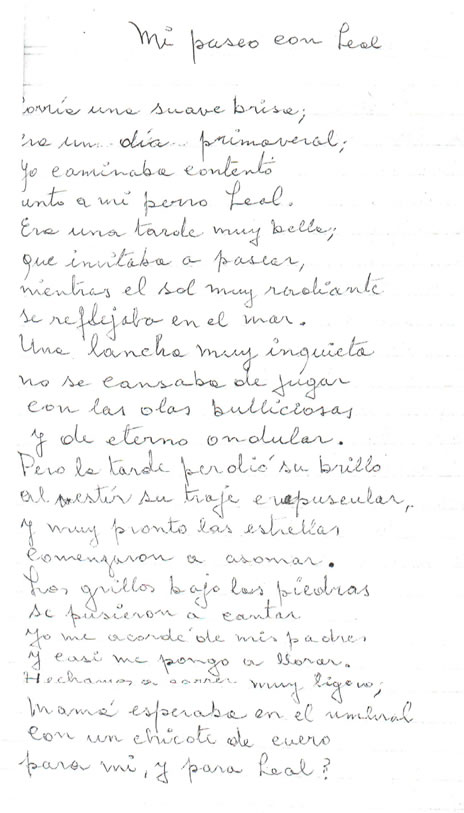 Mi paseo con Leal
Corría una suave brisa;
Era un día primaveral;
Yo caminaba contento
junto a mi perro Leal.
Era una tarde muy bella;
que invitaba a pasear,
mientras el sol muy radiante
se reflejaba en el mar.
Una lancha muy inquieta
no se cansaba de jugar
con las olas bulliciosas
y de eterno ondular.
Pero la tarde perdió su brillo
al vestir su traje crepuscular,
Y muy pronto las estrellas
comenzaron a asomar.
Los grillos bajo las piedras
se pusieron a cantar
Yo me acordé de mis padres
Y casi me pongo a llorar.
Hechamos a correr muy ligero;
Mamá esperaba en el umbral
con un chicote de cuero
para mi, y para Leal?